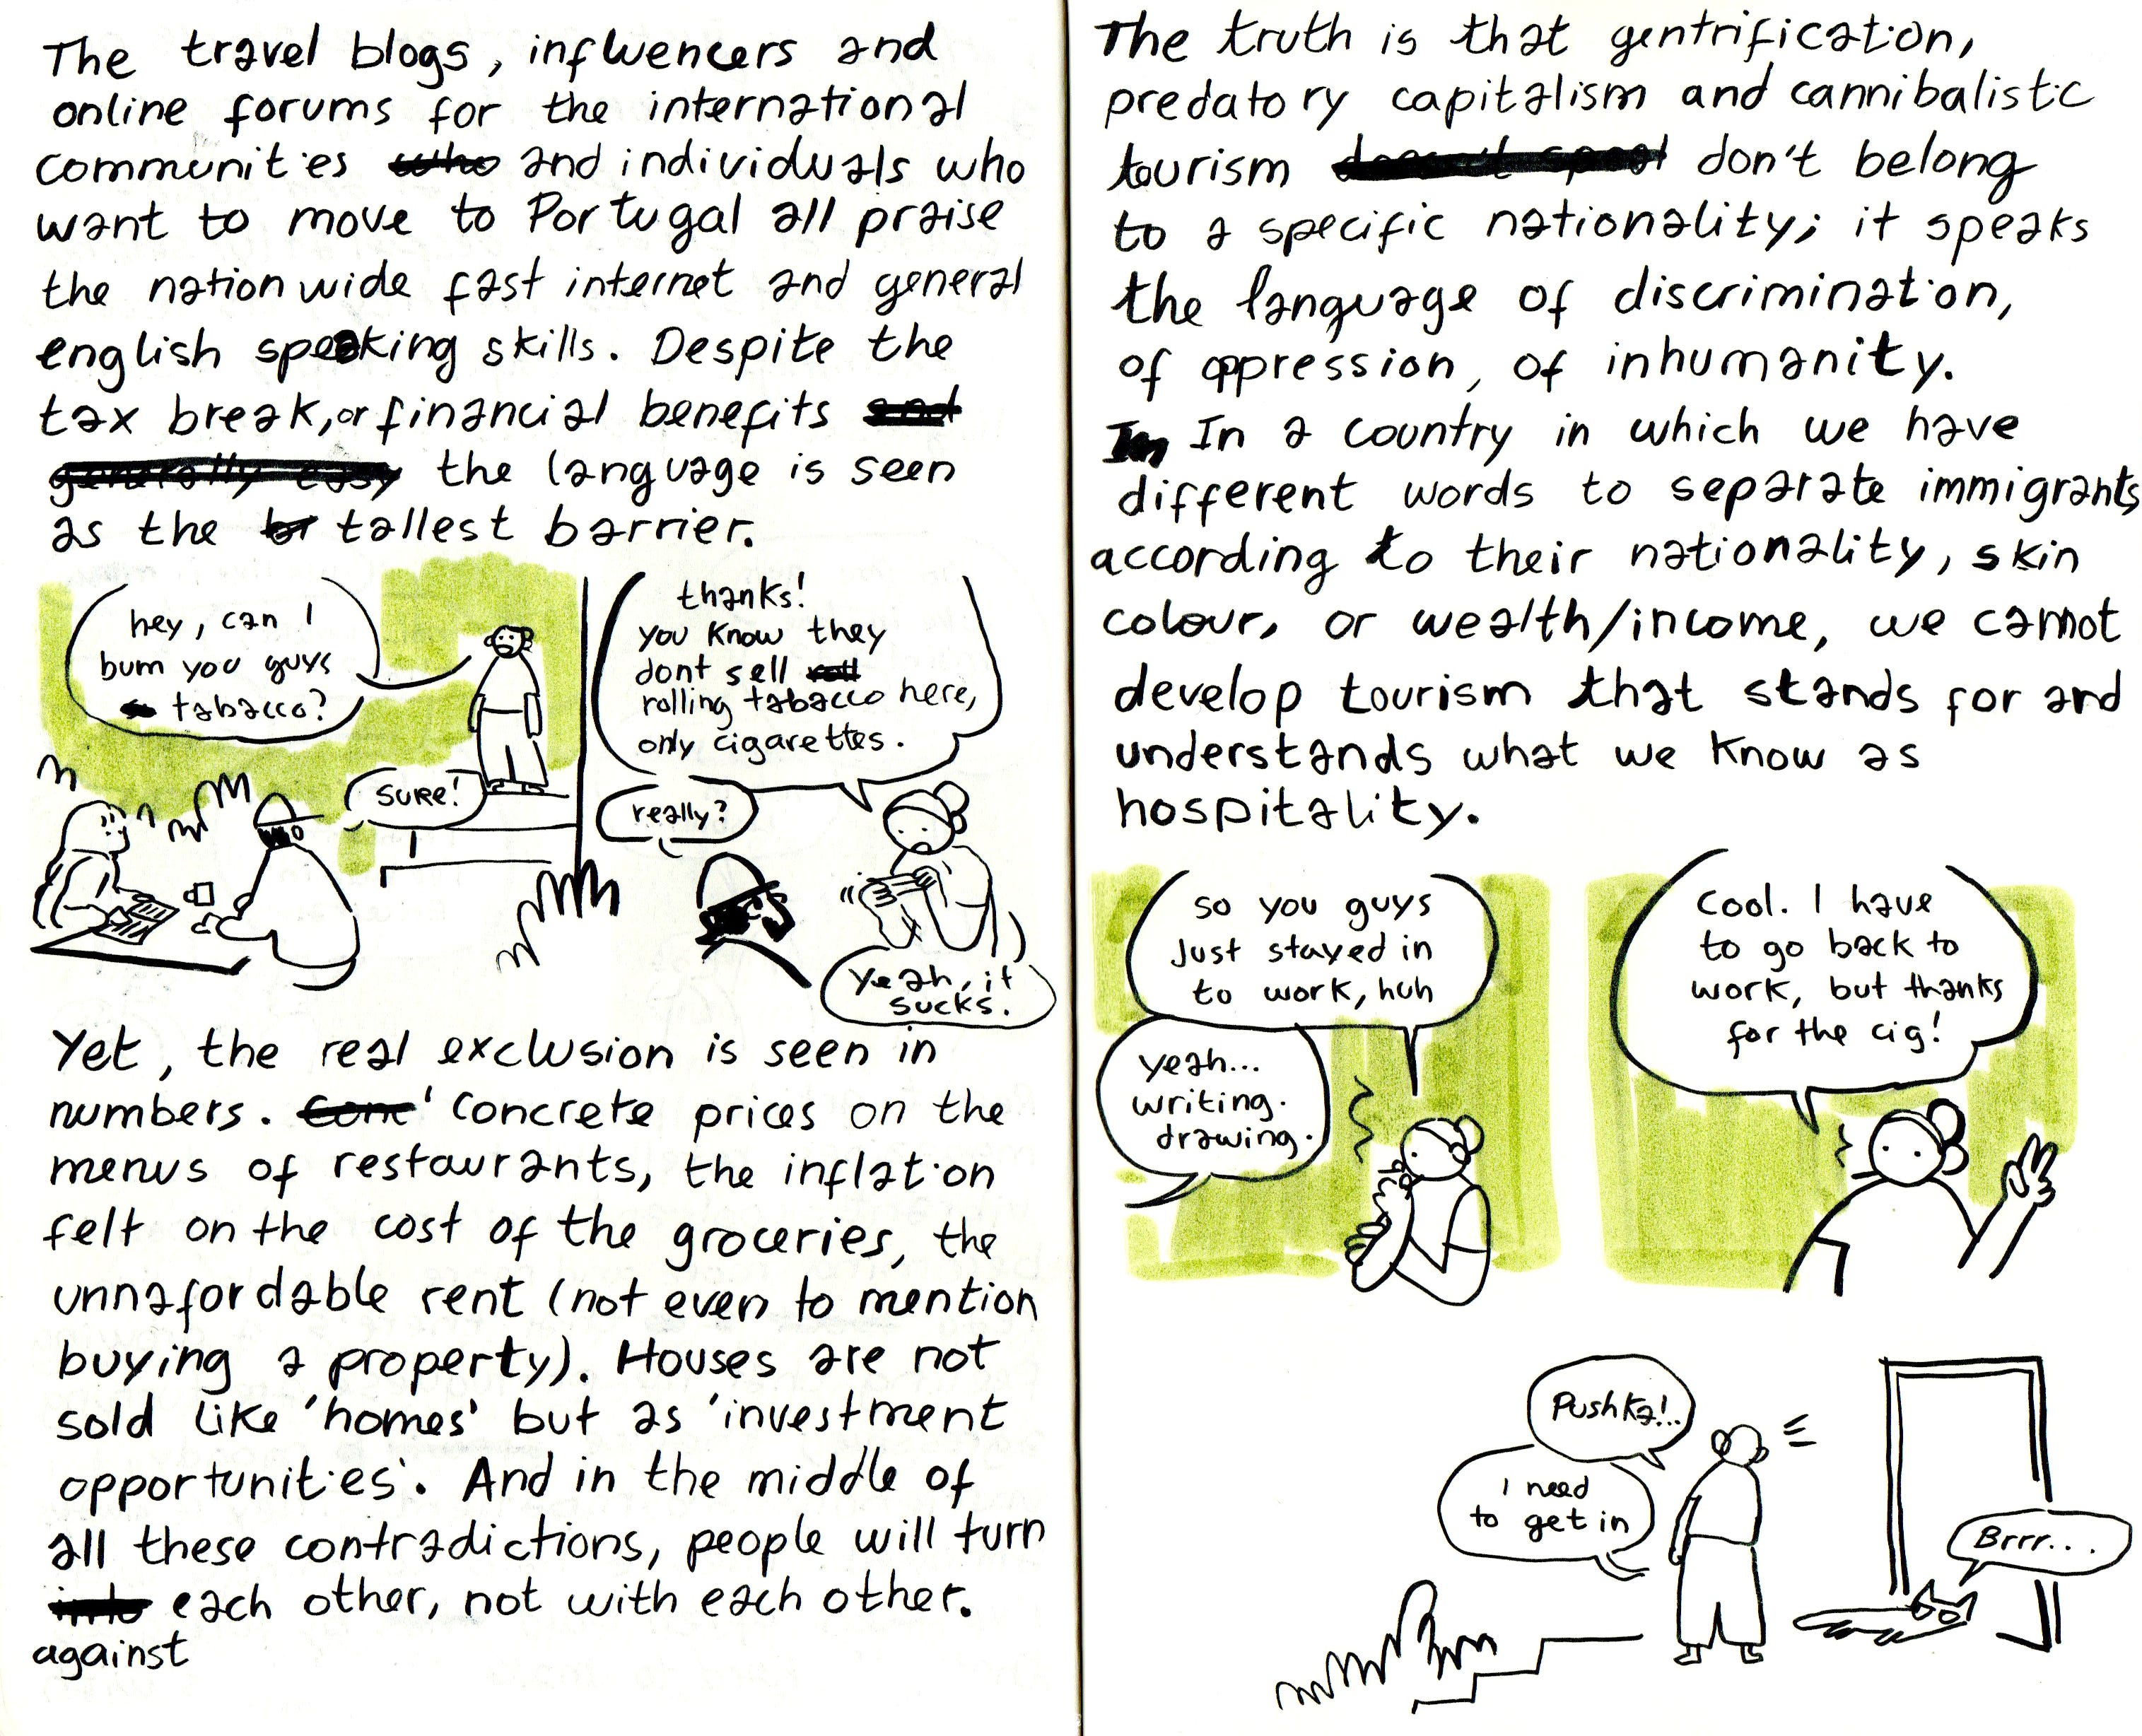 The travel blogs, influencers and
online forums for the international
communities who and individuals who
want to move to Portugal all praise
the nationwide fast internet and general
english speaking skills. Despite the
tax break, or financial benefits and
generally easy the language is seen
as the br tallest barrier.
hey, can I
bum you guys
tabacco?
sure!
thanks!
you know they
dont sell roll
rolling tabacco here,
only cigarettes.
really?
Yeah, it
sucks.
Yet, the real exclusion is seen in
numbers. Conc' concrete prices on the
menus of restaurants, the inflation
felt on the cost of the groceries, the
unnafordable rent (not even to mention
buying a property). Houses are not
sold like 'homes' but as 'investment
opportunities'. And in the middle of
all these contradictions, people will turn
into each other, not with each other.
against
The truth is that gentrification,
predatory capitalism and cannibalistic
tourism don't belong
to a specific nationality; it speaks
the language of discrimination,
of oppression, of inhumanity.
In In a country in which we have
different words to separate immigrants
according to their nationality, skin
colour, or wealth/income, we cannot
develop tourism that stands for and
understands what we know as
hospitality.
so you guys
just stayed in
to work, huh
yeah...
writing.
drawing.
Cool. I have
to go back to
work, but thanks
for the cig!
Pushka!..
I need
to get in
Brrr...